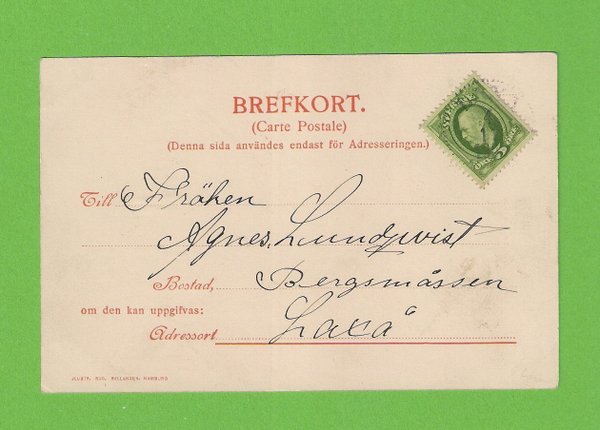 BREFKORT.
(Carte Postale)
(Denna sida användes endast för Adresseringen.)
Till Fröken
Agnes Lundqvist
Bostad, Bergsmåssen
om den kan uppgifvas:
Adressort Laxå
SVERIGE
5